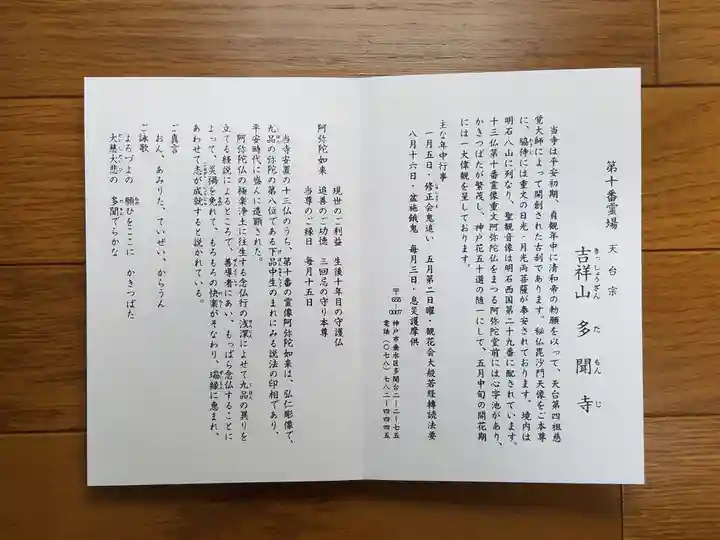 第十番霊場 天台宗
吉祥山 多聞寺
きっしょうざん たもんじ
当寺は平安初期、貞観年中に清和帝の勅願を以って、天台第四祖慈
覚大師によって開創された古刹であります。秘仏毘沙門天像をご本尊
に、脇侍には重文の日光・月光両菩薩が奉安されております。境内は
明石八山に列なり、聖観音像は明石西国第二十九番に配されています。
十三仏第十番霊像重文阿弥陀仏をまつる阿弥陀堂前には心字池があり、
かきつばたが繁茂し、神戸花五十選の随一にして、五月中旬の開花期
には一大偉観を呈しております。
主な年中行事
一月五日・修正会鬼追い 五月第二日曜・観花会大般若経転読法要
八月十六日・盆施餓鬼 毎月三日・息災護摩供
〒655-0007 神戸市垂水区多聞台二-二-七五
電話(〇七八)七八二-四四四五
阿弥陀如来
現世のご利益 生後十年目の守護仏
追善のご功徳 三回忌の守り本尊
当尊のご縁日 毎月十五日
当寺安置の十三仏のうち、第十番の霊像阿弥陀如来は、弘仁彫像で、
九品の弥陀の第八位である下品中生のまれにみる説法の印相であり、
平安時代に盛んに造顕された。
阿弥陀仏の極楽浄土に往生する念仏行の浅深によせて九品の異りを
立てる経説によるところで、善導者にあい、もっぱら念仏することに
よって、災禍を免れて、もろもろの快楽がそなわり、瑞縁に恵まれ、
あわせて志が成就すると説かれている。
ご真言
おん、あみりた、ていぜい、からうん
ご詠歌
よろづよの 願ひをここに かきつばた
大慈大悲の 多聞でらかな